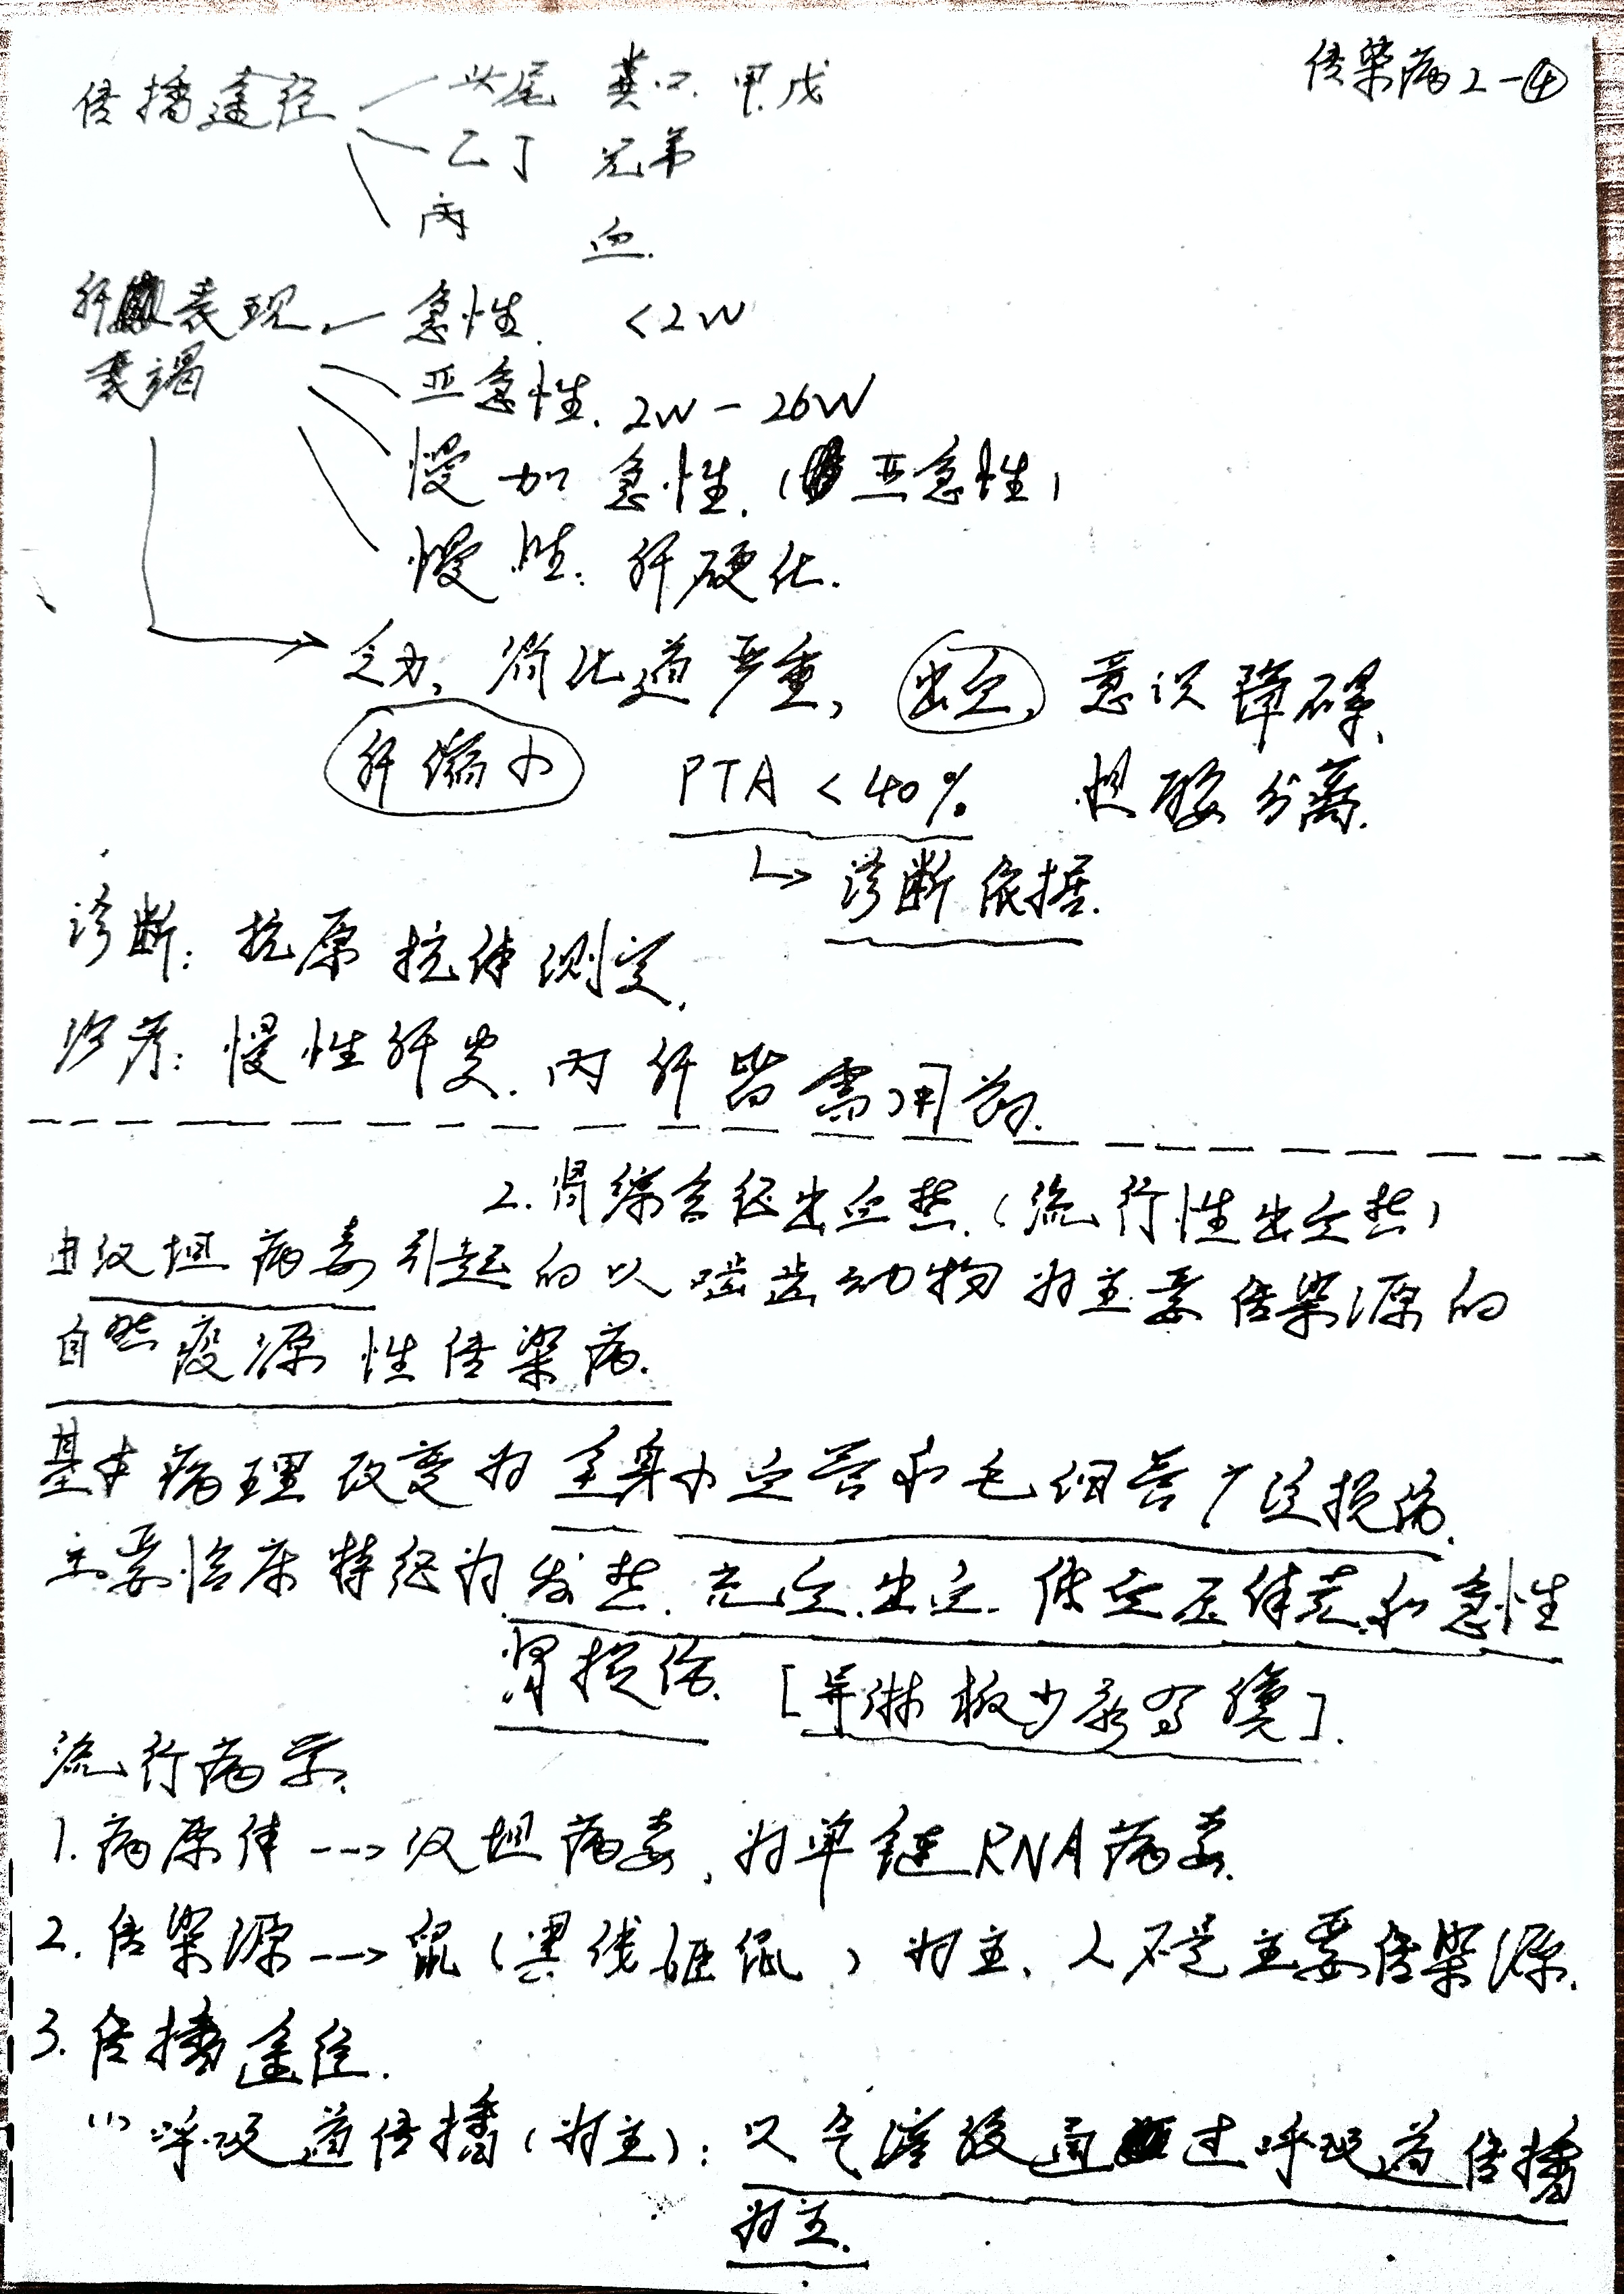 传染病2-④
传播途径 头尾 粪口. 甲.戊
乙丁 兄弟
丙 血.
肝 表现. 急性. <2w
衰竭
亚急性. 2w-26w
慢加急性. (亚急性)
慢性: 肝硬化.
乏力, 消化道严重, 出血, 意识障碍,
肝缩小 PTA<40% 胆酶分离.
↳ 诊断依据.
诊断: 抗原抗体测定.
治疗: 慢性肝炎. 丙肝皆需用药.
2. 肾综合征出血热. (流行性出血热)
由汉坦病毒引起的以啮齿动物为主要传染源的
自然疫源性传染病.
基本病理改变为全身小血管和毛细管广泛损伤.
主要临床特征为发热. 充血. 出血. 低血压休克.和急性
肾损伤. [异淋板少新夸獍].
流行病学.
1. 病原体 --→ 汉坦病毒, 为单链RNA病毒.
2. 传染源 --→ 鼠(黑线姬鼠) 为主. 人不是主要传染源.
3. 传播途径.
(1) 呼吸道传播(为主): 以气溶胶通过呼吸道传播
为主.